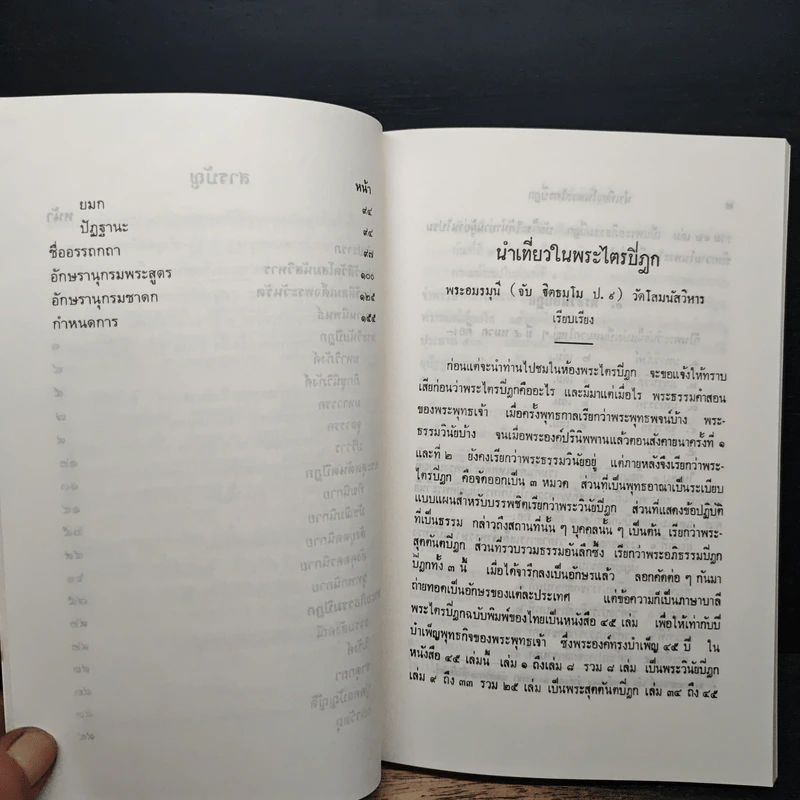 หน้า
ยมก ๙๔
ปัฏฐานะ ๙๔
ชื่ออรรถกถา ๙๗
อักษรานุกรมพระสูตร ๑๐๐
อักษรานุกรมชาดก ๑๒๕
กำหนดการ ๑๕๕
นำเที่ยวในพระไตรปิฎก
พระอมรมุนี (จับ ฐิตธมฺโม ป.๙) วัดโสมนัสวิหาร
เรียบเรียง
ก่อนแต่จะนำท่านไปชมในห้องพระไตรปิฎก จะขอแจ้งให้ทราบ
เสียก่อนว่าพระไตรปิฎกคืออะไร และมีมาแต่เมื่อไร พระธรรมคำสอน
ของพระพุทธเจ้า เมื่อครั้งพุทธกาลเรียกว่าพระพุทธพจน์บ้าง พระ-
ธรรมวินัยบ้าง จนเมื่อพระองค์ปรินิพพานแล้วตอนสังคายนาครั้งที่ ๑
และที่ ๒ ยังคงเรียกว่าพระธรรมวินัยอยู่ แต่ภายหลังจึงเรียกว่าพระ-
ไตรปิฎก คือจัดออกเป็น ๓ หมวด ส่วนที่เป็นพุทธอาณาเป็นระเบียบ
แบบแผนสำหรับบรรพชิตเรียกว่าพระวินัยปิฎก ส่วนที่แสดงข้อปฏิบัติ
ที่เป็นธรรม กล่าวถึงสถานที่นั้น ๆ บุคคลนั้น ๆ เป็นต้น เรียกว่าพระ-
สุตตันตปิฎก ส่วนที่รวบรวมธรรมอันลึกซึ้ง เรียกว่าพระอภิธรรมปิฎก
ปิฎกทั้ง ๓ นี้ เมื่อได้จารึกลงเป็นอักษรแล้ว ลอกคัดต่อ ๆ กันมา
ถ่ายทอดเป็นอักษรของแต่ละประเทศ แต่ข้อความก็เป็นภาษาบาลี
พระไตรปิฎกฉบับพิมพ์ของไทยเป็นหนังสือ ๔๕ เล่ม เพื่อให้เท่ากับปี
บำเพ็ญพุทธกิจของพระพุทธเจ้า ซึ่งพระองค์ทรงบำเพ็ญ ๔๕ ปี ใน
หนังสือ ๔๕ เล่มนี้ เล่ม ๑ ถึงเล่ม ๘ รวม ๘ เล่ม เป็นพระวินัยปิฎก
เล่ม ๙ ถึง ๓๓ รวม ๒๕ เล่ม เป็นพระสุตตันตปิฎก เล่ม ๓๔ ถึง ๔๕